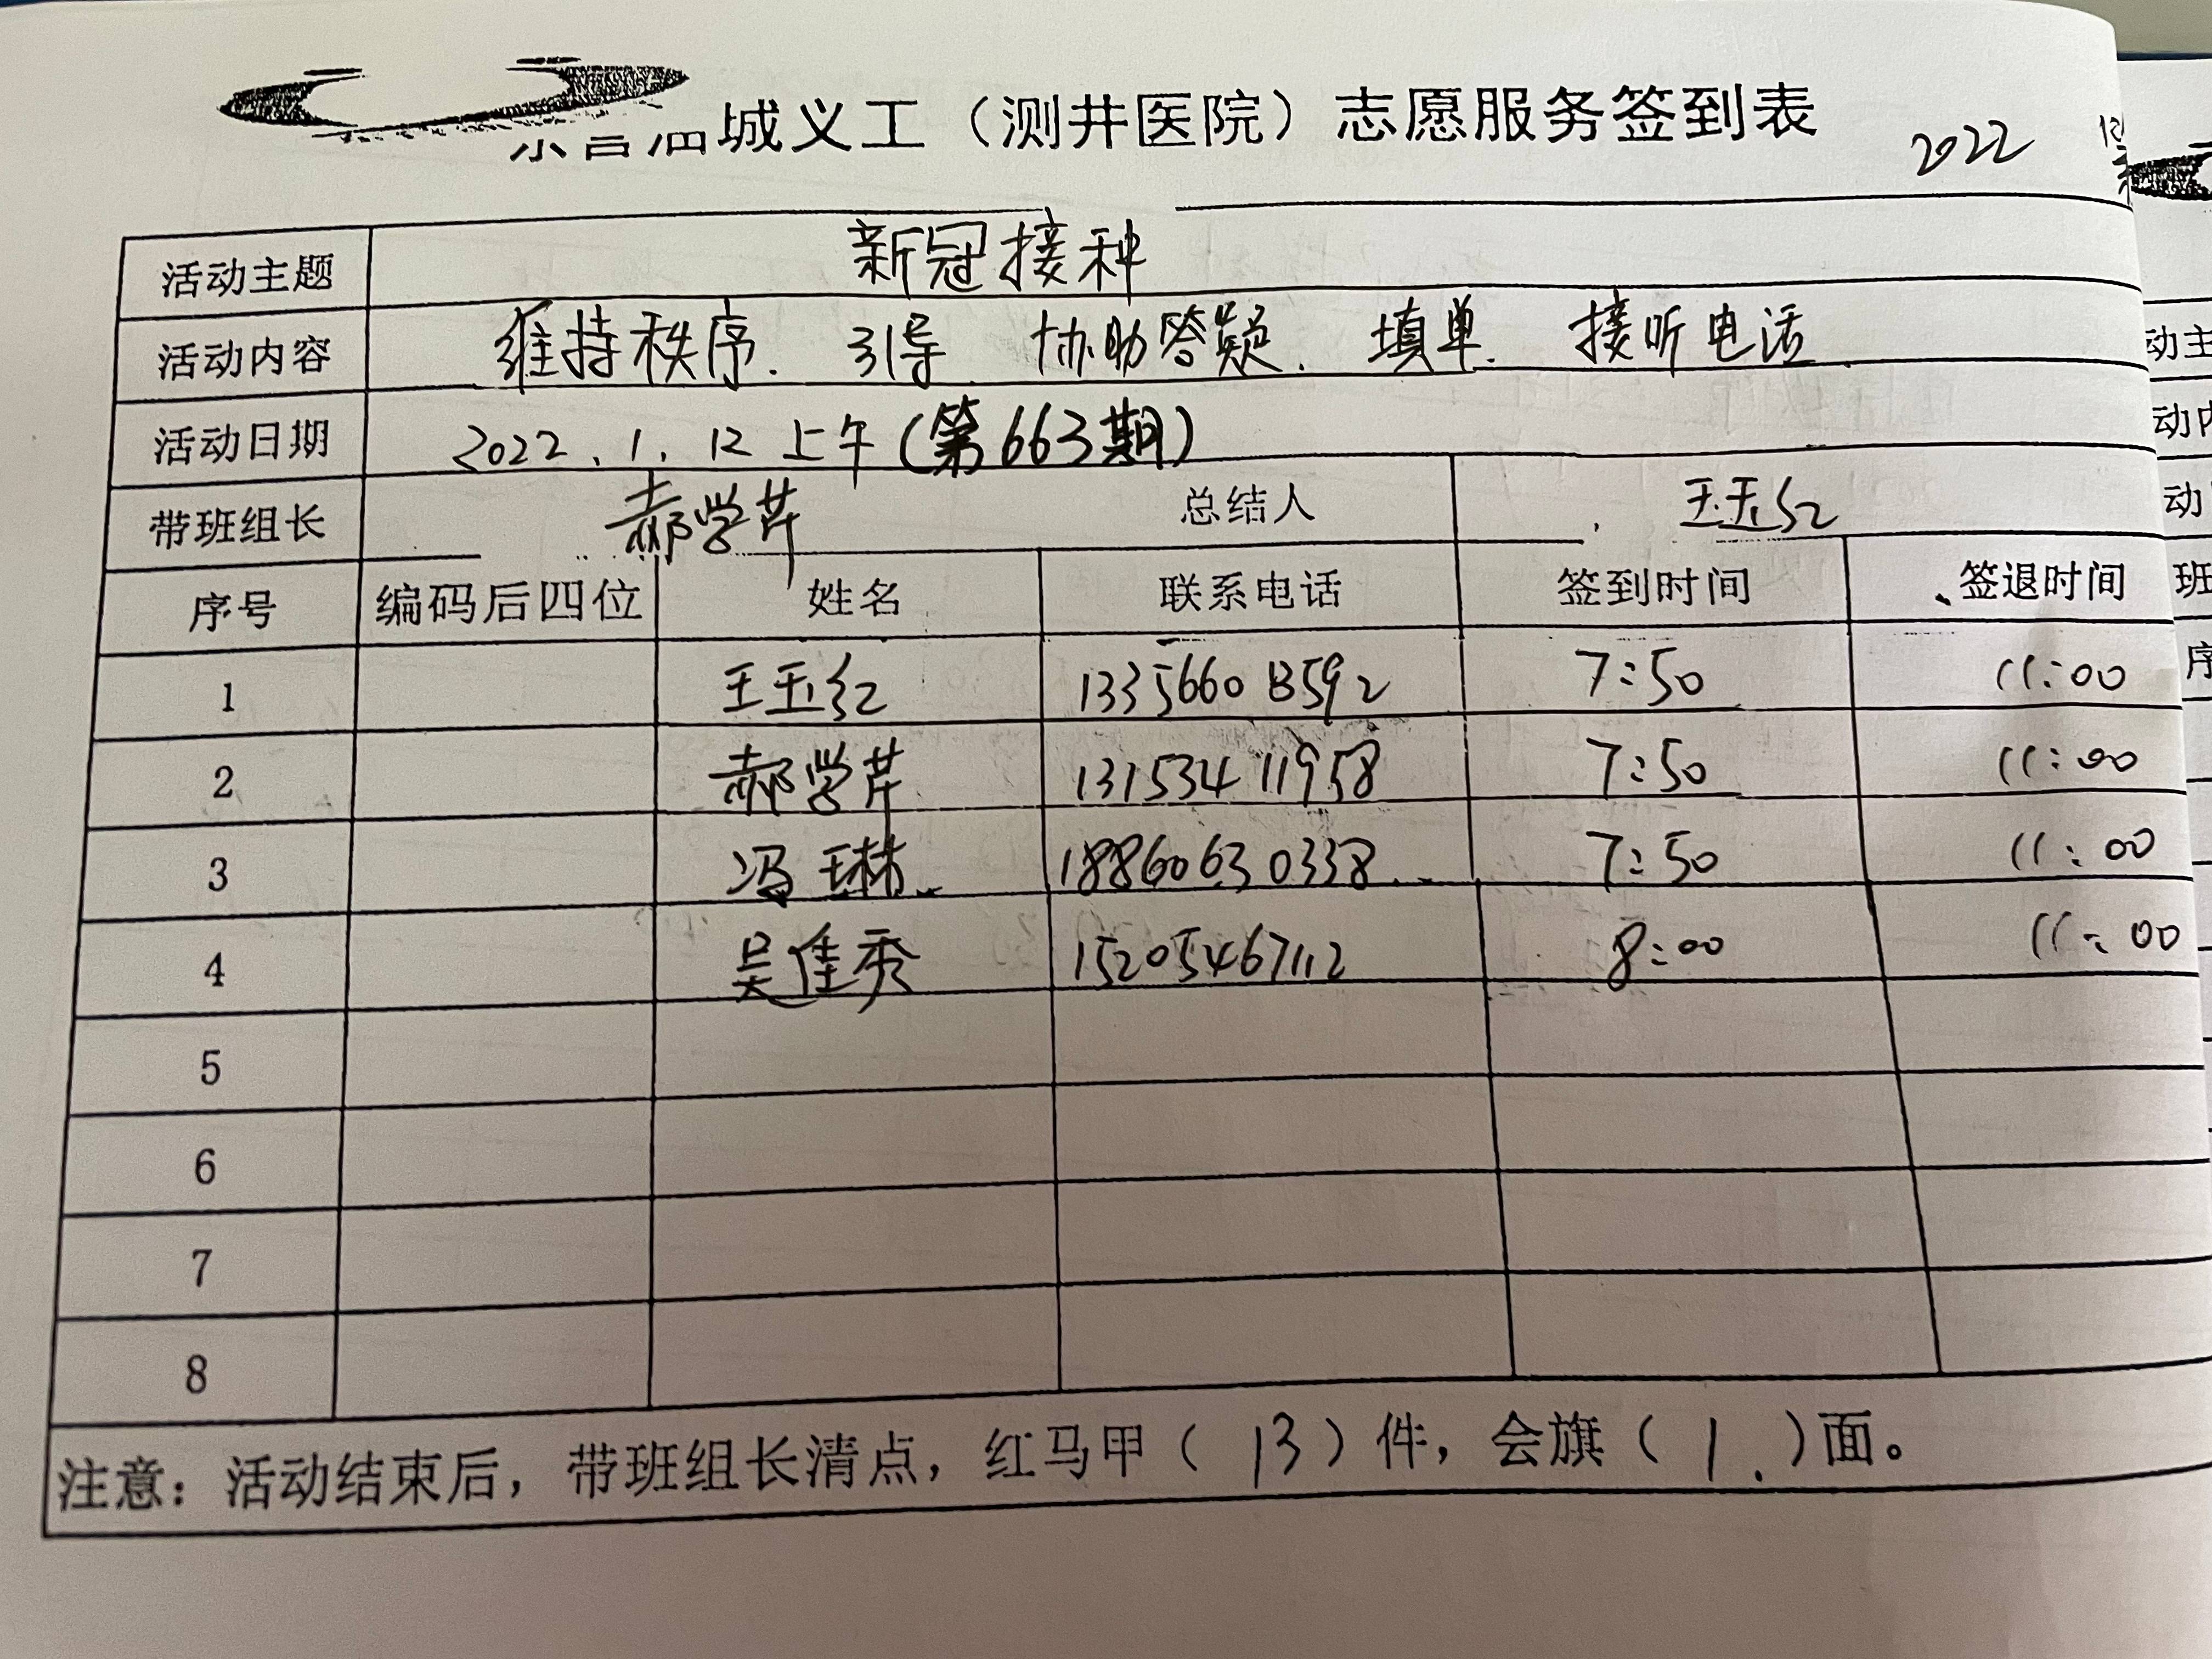 城义工（测井医院）志愿服务签到表
2022
活动主题 新冠接种
活动内容 维持秩序. 引导 协助答疑. 填单. 接听电话
活动日期 2022.1.12上午(第663期)
带班组长 郝学芹 总结人 王玉红
序号 编码后四位 姓名 联系电话 签到时间 签退时间
1 王玉红 7:50 11:00
2 郝学芹 13153411958 7:50 11:00
3 冯琳 18860630338 7:50 11:00
4 吴佳秀 15205467112 8:00 11:00
5
6
7
8
注意：活动结束后，带班组长清点，红马甲（13）件，会旗（1.）面。
动主
动内
动
班
序